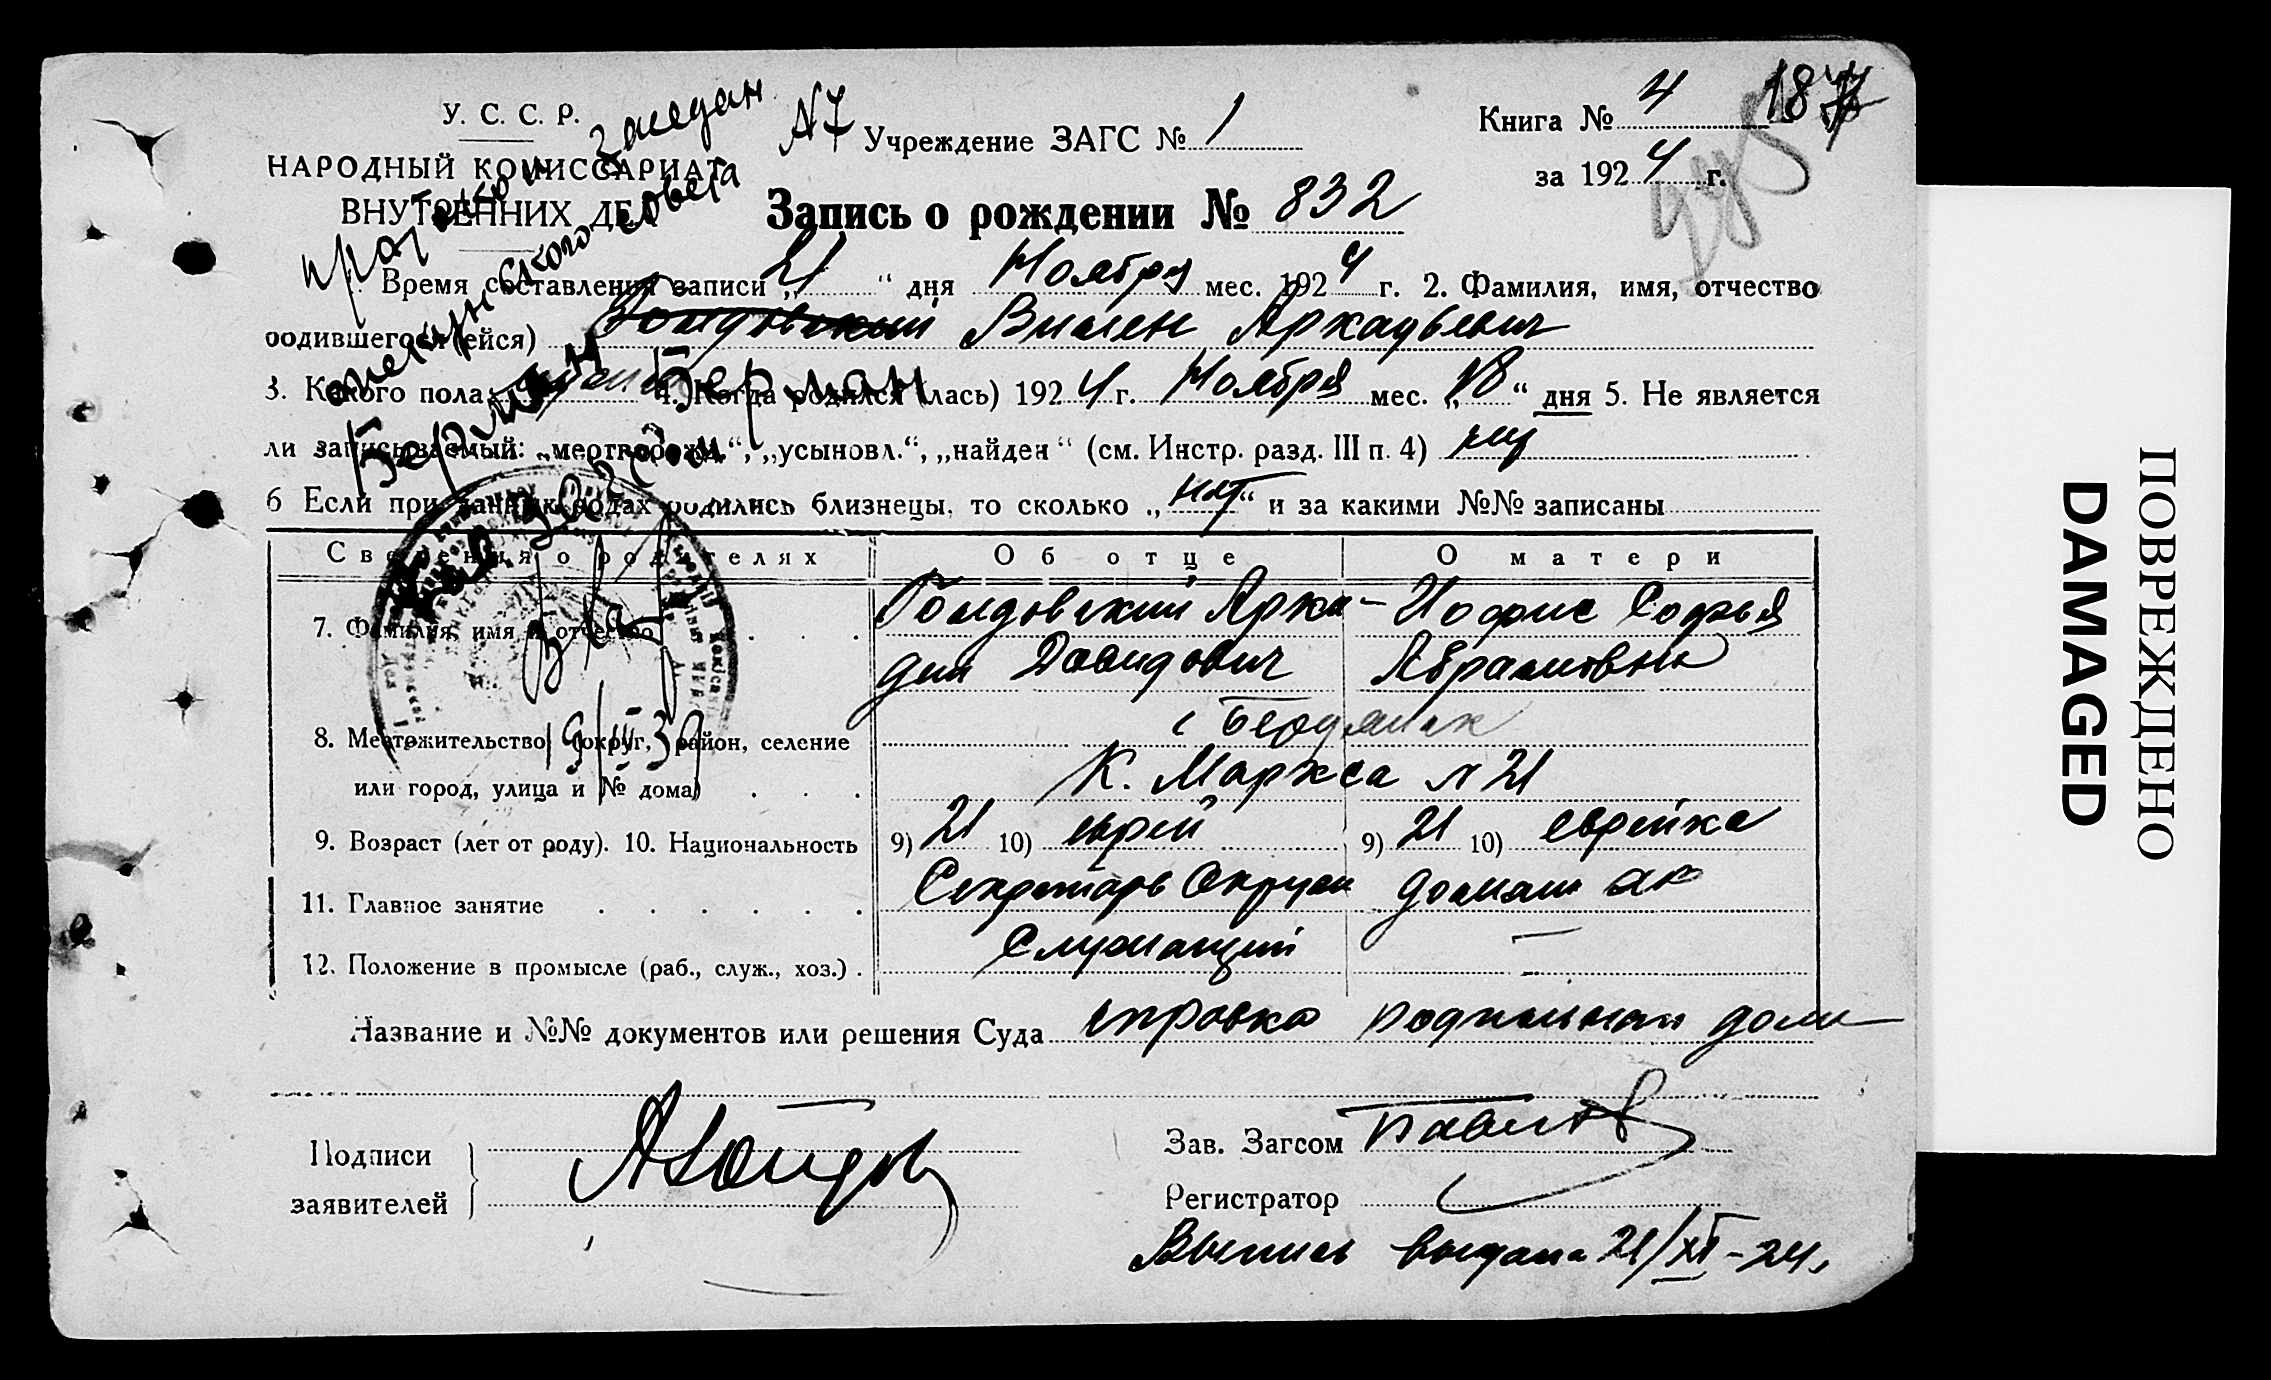 У. С. С. Р.
НАРОДНЫЙ КОМИССАРИАТ
ВНУТРЕННИХ ДЕЛ
протокол заседан №7
опекунского совета
Берман
Учреждение ЗАГС № 1
Книга № 4
за 1924 г.
Запись о рождении № 832
1. Время составления записи „21“ дня Ноября мес. 1924 г. 2. Фамилия, имя, отчество
родившегося (ейся) Вилен Аркадьевич
Берман
3. Какого пола 4. Когда родился (лась) 1924 г. Ноября мес. „18“ дня 5. Не является
ли записываемый: „мертворожд.“, „усыновл.“, „найден“ (см. Инстр. разд. III п. 4) нет
6 Если при данных родах родились близнецы, то сколько „нет“ и за какими №№ записаны
Сведения о родителях Об отце О матери
7. Фамилия, имя и отчество Гойдовский Арка- Иофис Софья
дий Давидович Абрамовна
8. Местожительство (округ, район, селение г Бердянск
или город, улица и № дома) К. Маркса № 21
9. Возраст (лет от роду). 10. Национальность 9) 21 10) еврей 9) 21 10) еврейка
11. Главное занятие Секретарь домаш
12. Положение в промысле (раб., служ., хоз.) Служащий —
19/III 39
Название и №№ документов или решения Суда справка родильного дома
Подписи
заявителей
Зав. Загсом
Регистратор
Выпись выдана 21/XI-24.
ПОВРЕЖДЕНО
DAMAGED